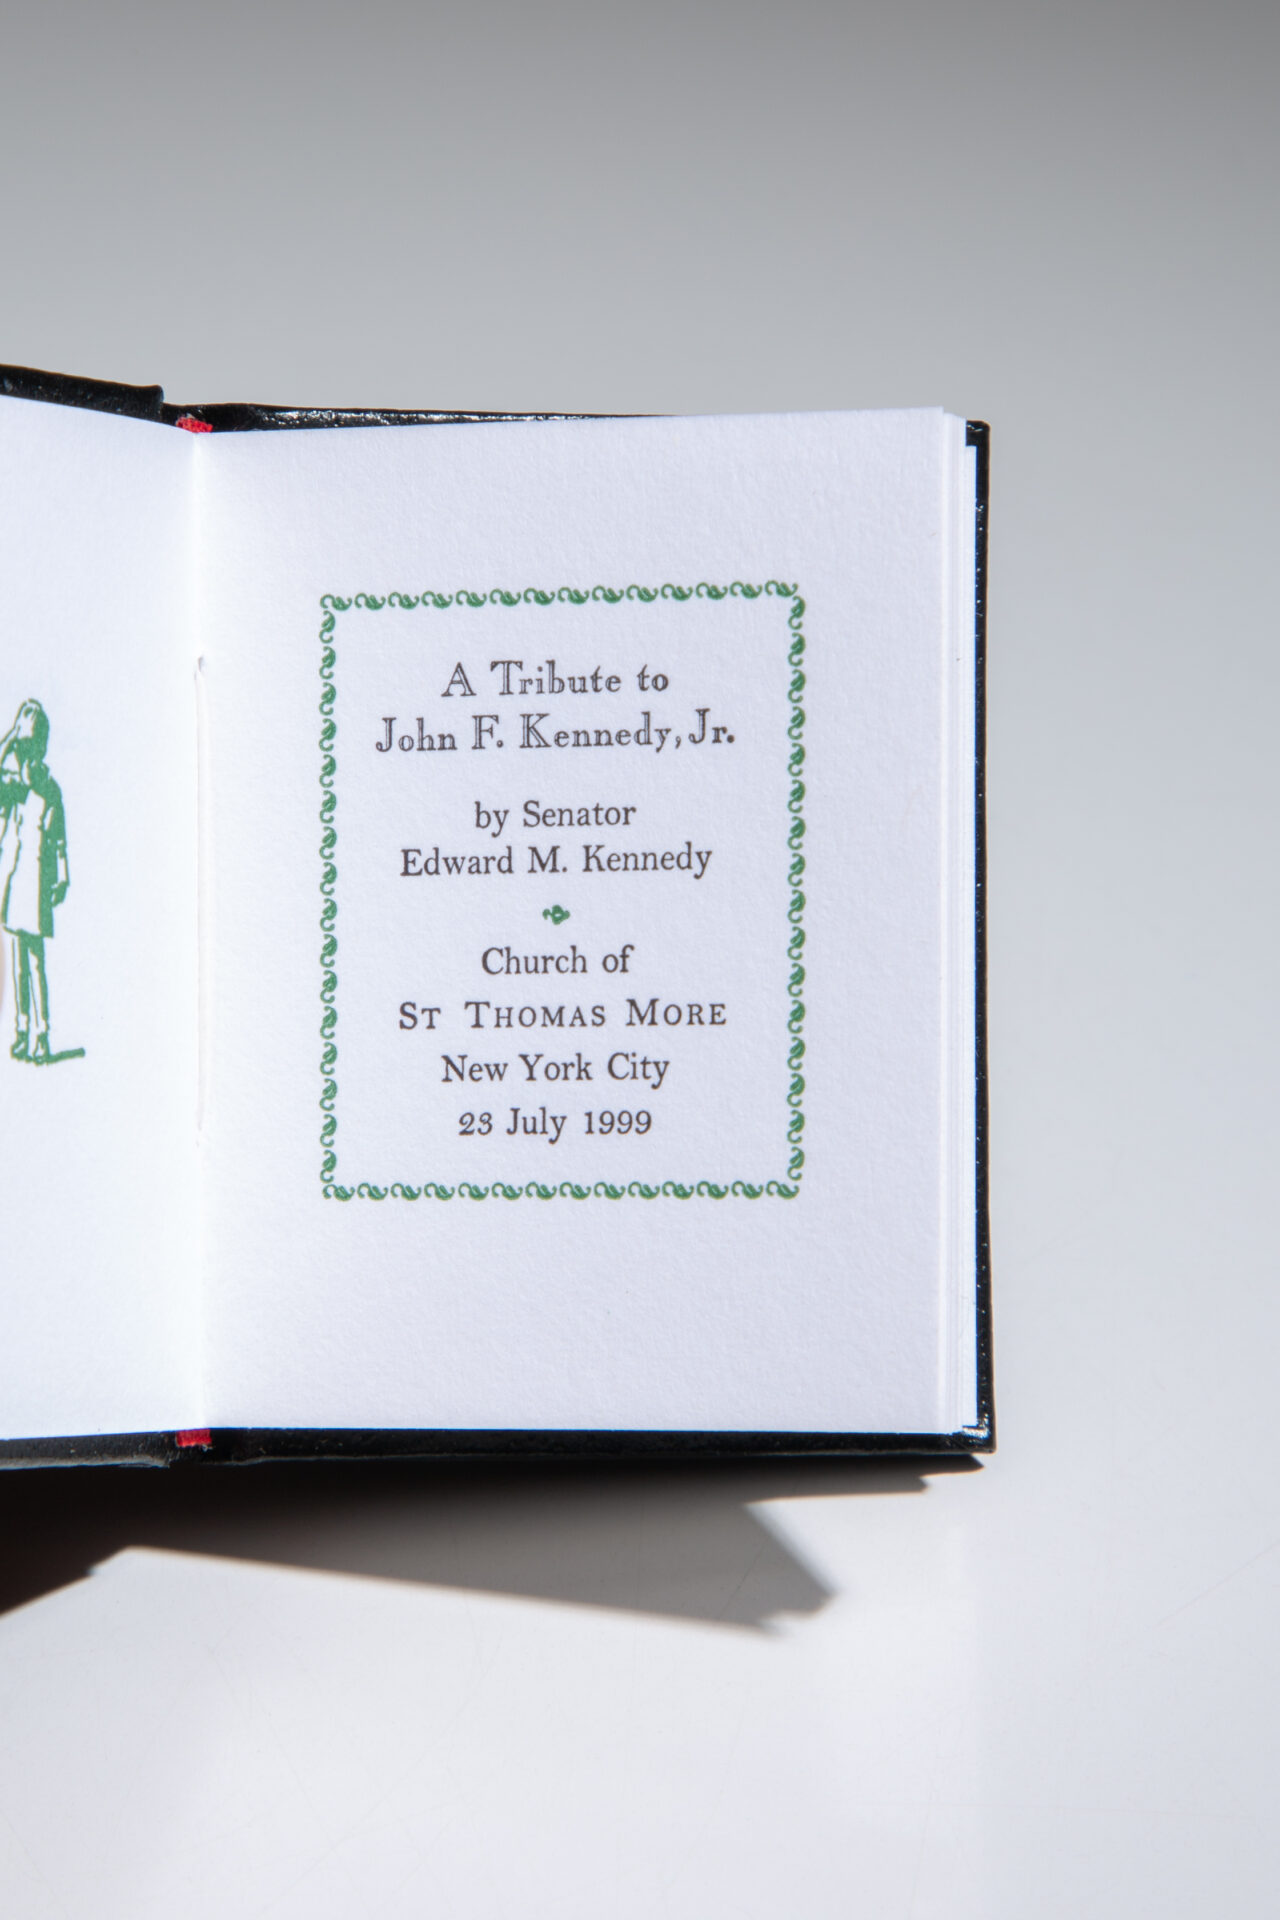 A Tribute to
John F. Kennedy, Jr.
by Senator
Edward M. Kennedy
Church of
ST THOMAS MORE
New York City
23 July 1999